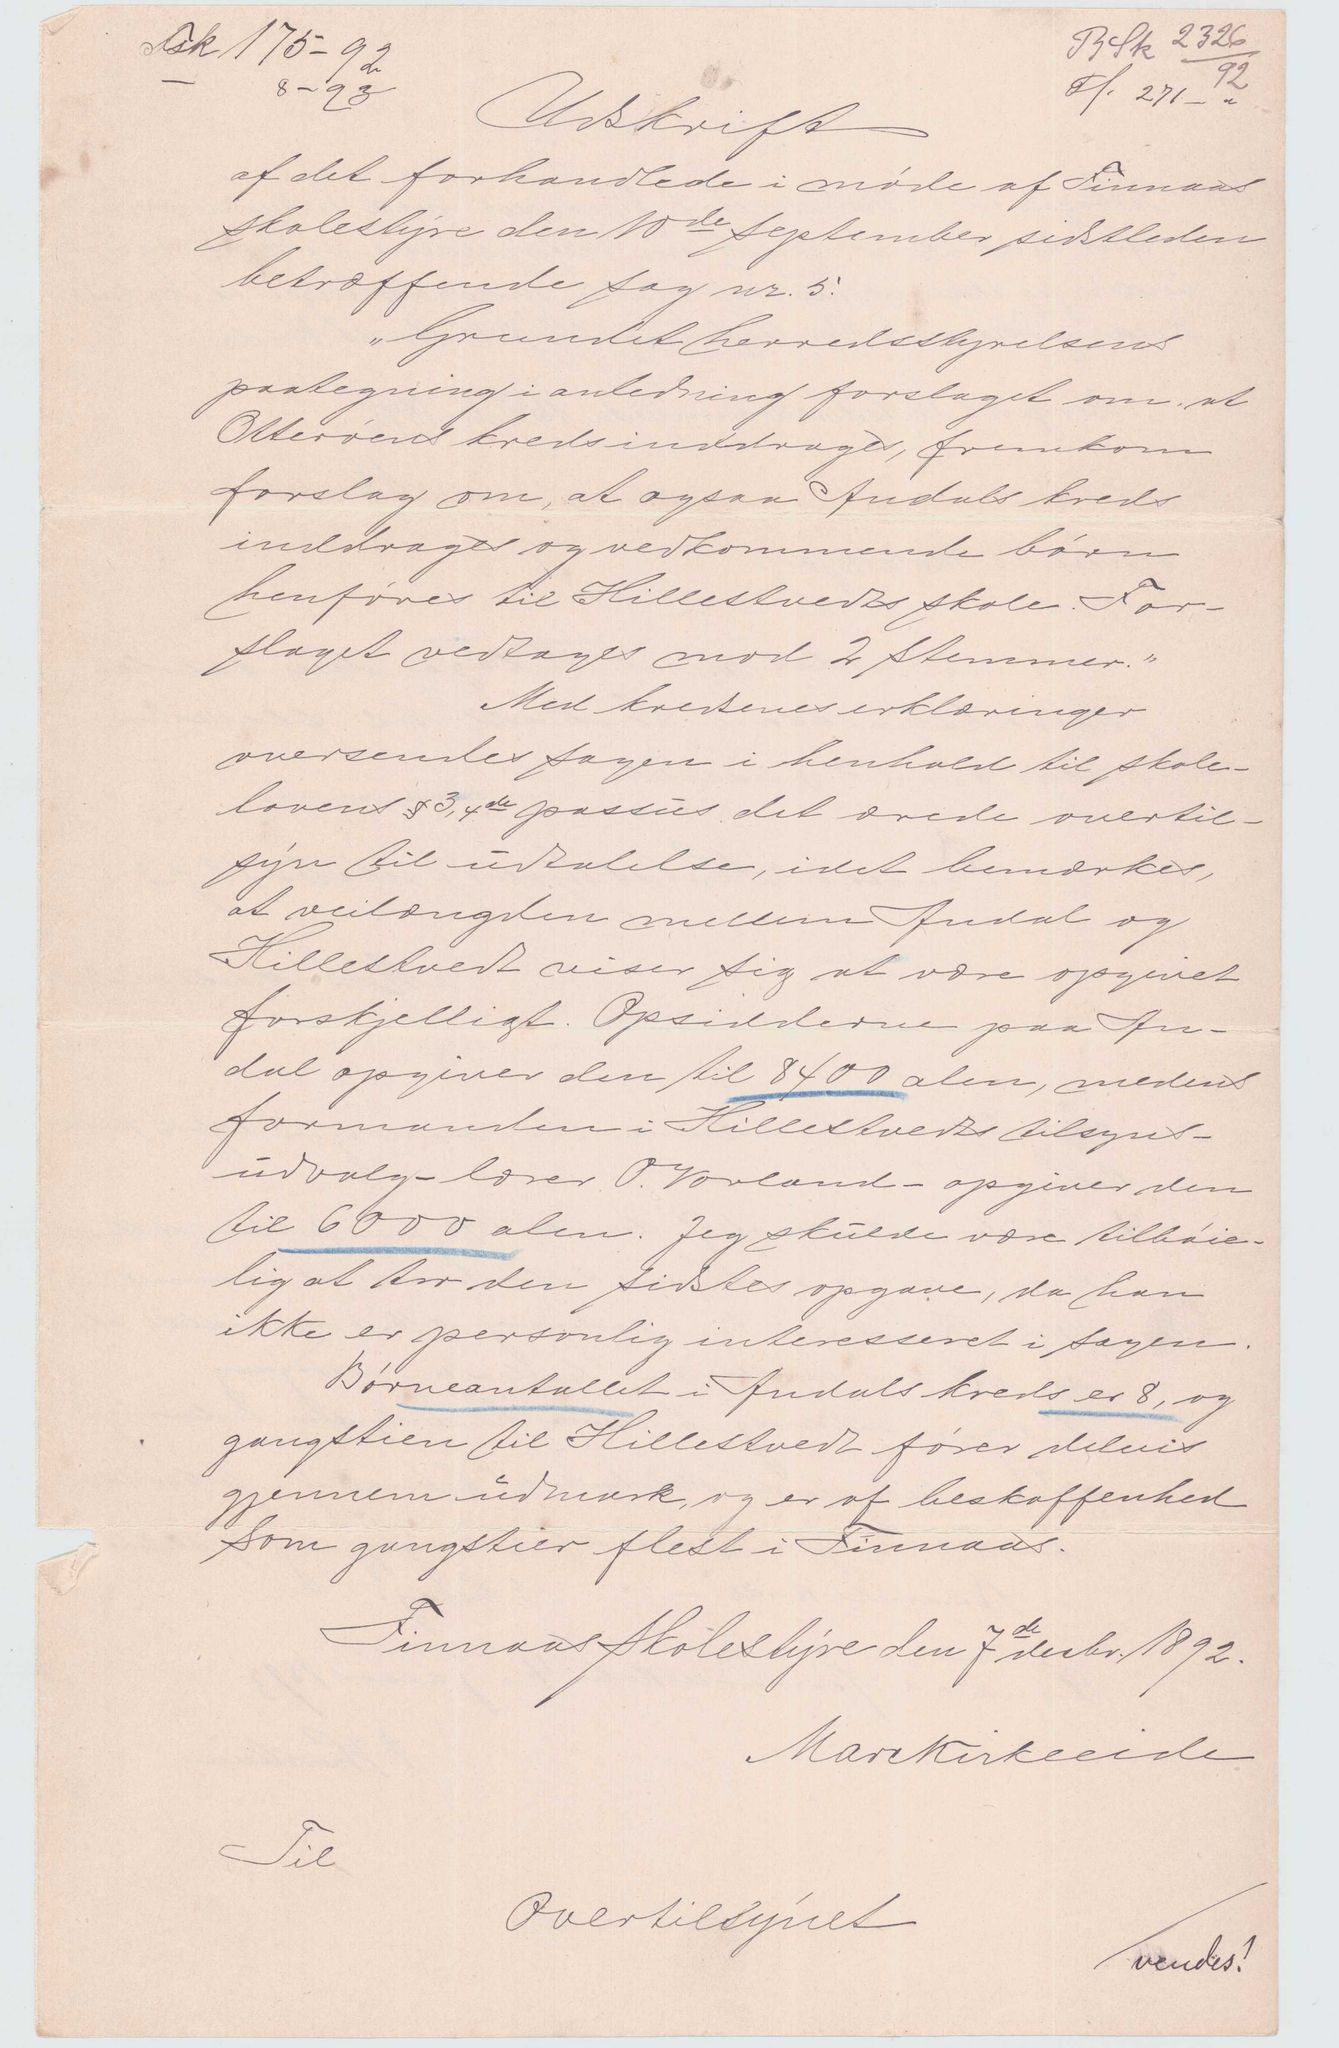 Ask 175-92
8-93
BSk 2326/92
Ff. 271-"
Udskrift
af det forhandlede i møde af Finnaas
skolestyre den 10de september sidstleden
betræffende sag nr. 5.
"Grundet herredsstyrelsens
paategning i anledning forslaget om at
Otterøens kreds inddrages, fremkom
forslag om, at ogsaa Andals kreds
inddrages og vedkommende børn
henføres til Hillestvedts skole. For-
slaget vedtages mod 2 stemmer."
Med kredsenes erklæringer
oversendes sagen i henhold til skole-
lovens § 3, 4de passus det ærede overtil-
syn til udtalelse, idet bemærkes,
at veilængden mellem Andal og
Hillestvedt viser sig at være opgivet
forskjelligt. Opsidderne paa An-
dal opgiver den til 8400 alen, medens
formanden i Hillestvedts tilsyns-
udvalg - lærer O. Vorland - opgiver den
til 6000 alen. Jeg skulde være tilbøie-
lig at tro den sidstes opgave, da han
ikke er personlig interesseret i sagen.
Børneantallet i Andals kreds er 8, og
gangstien til Hillestvedt fører delvis
gjennem udmark og er af beskaffenhed
som gangstier flest i Finnaas.
Finnaas skolestyre den 7de decbr. 1892.
Mar Kirkeeide
Til
Overtilsynet
vendes!